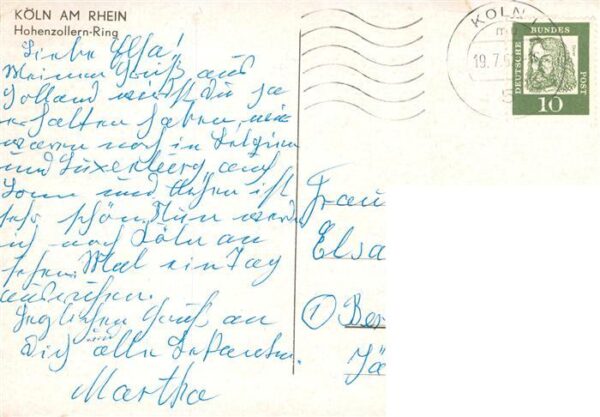 KÖLN AM RHEIN
Hohenzollern-Ring
Liebe Elsa!
Meinen Gruß aus
Holland wirst Du ja
erhalten haben, wir
waren noch in Belgien
und Luxenburg auch
Bonn und Hessen ist
sehr schön. Nun werde
ich noch Köln an
sehen. Mal ein Tag
ausruhen.
Herzlichen Gruß an
Dich alle Bekannten.
Martha
KÖLN
19.7.6
DEUTSCHE BUNDES POST
10
Frau
Elsa
1 Ber
Jä